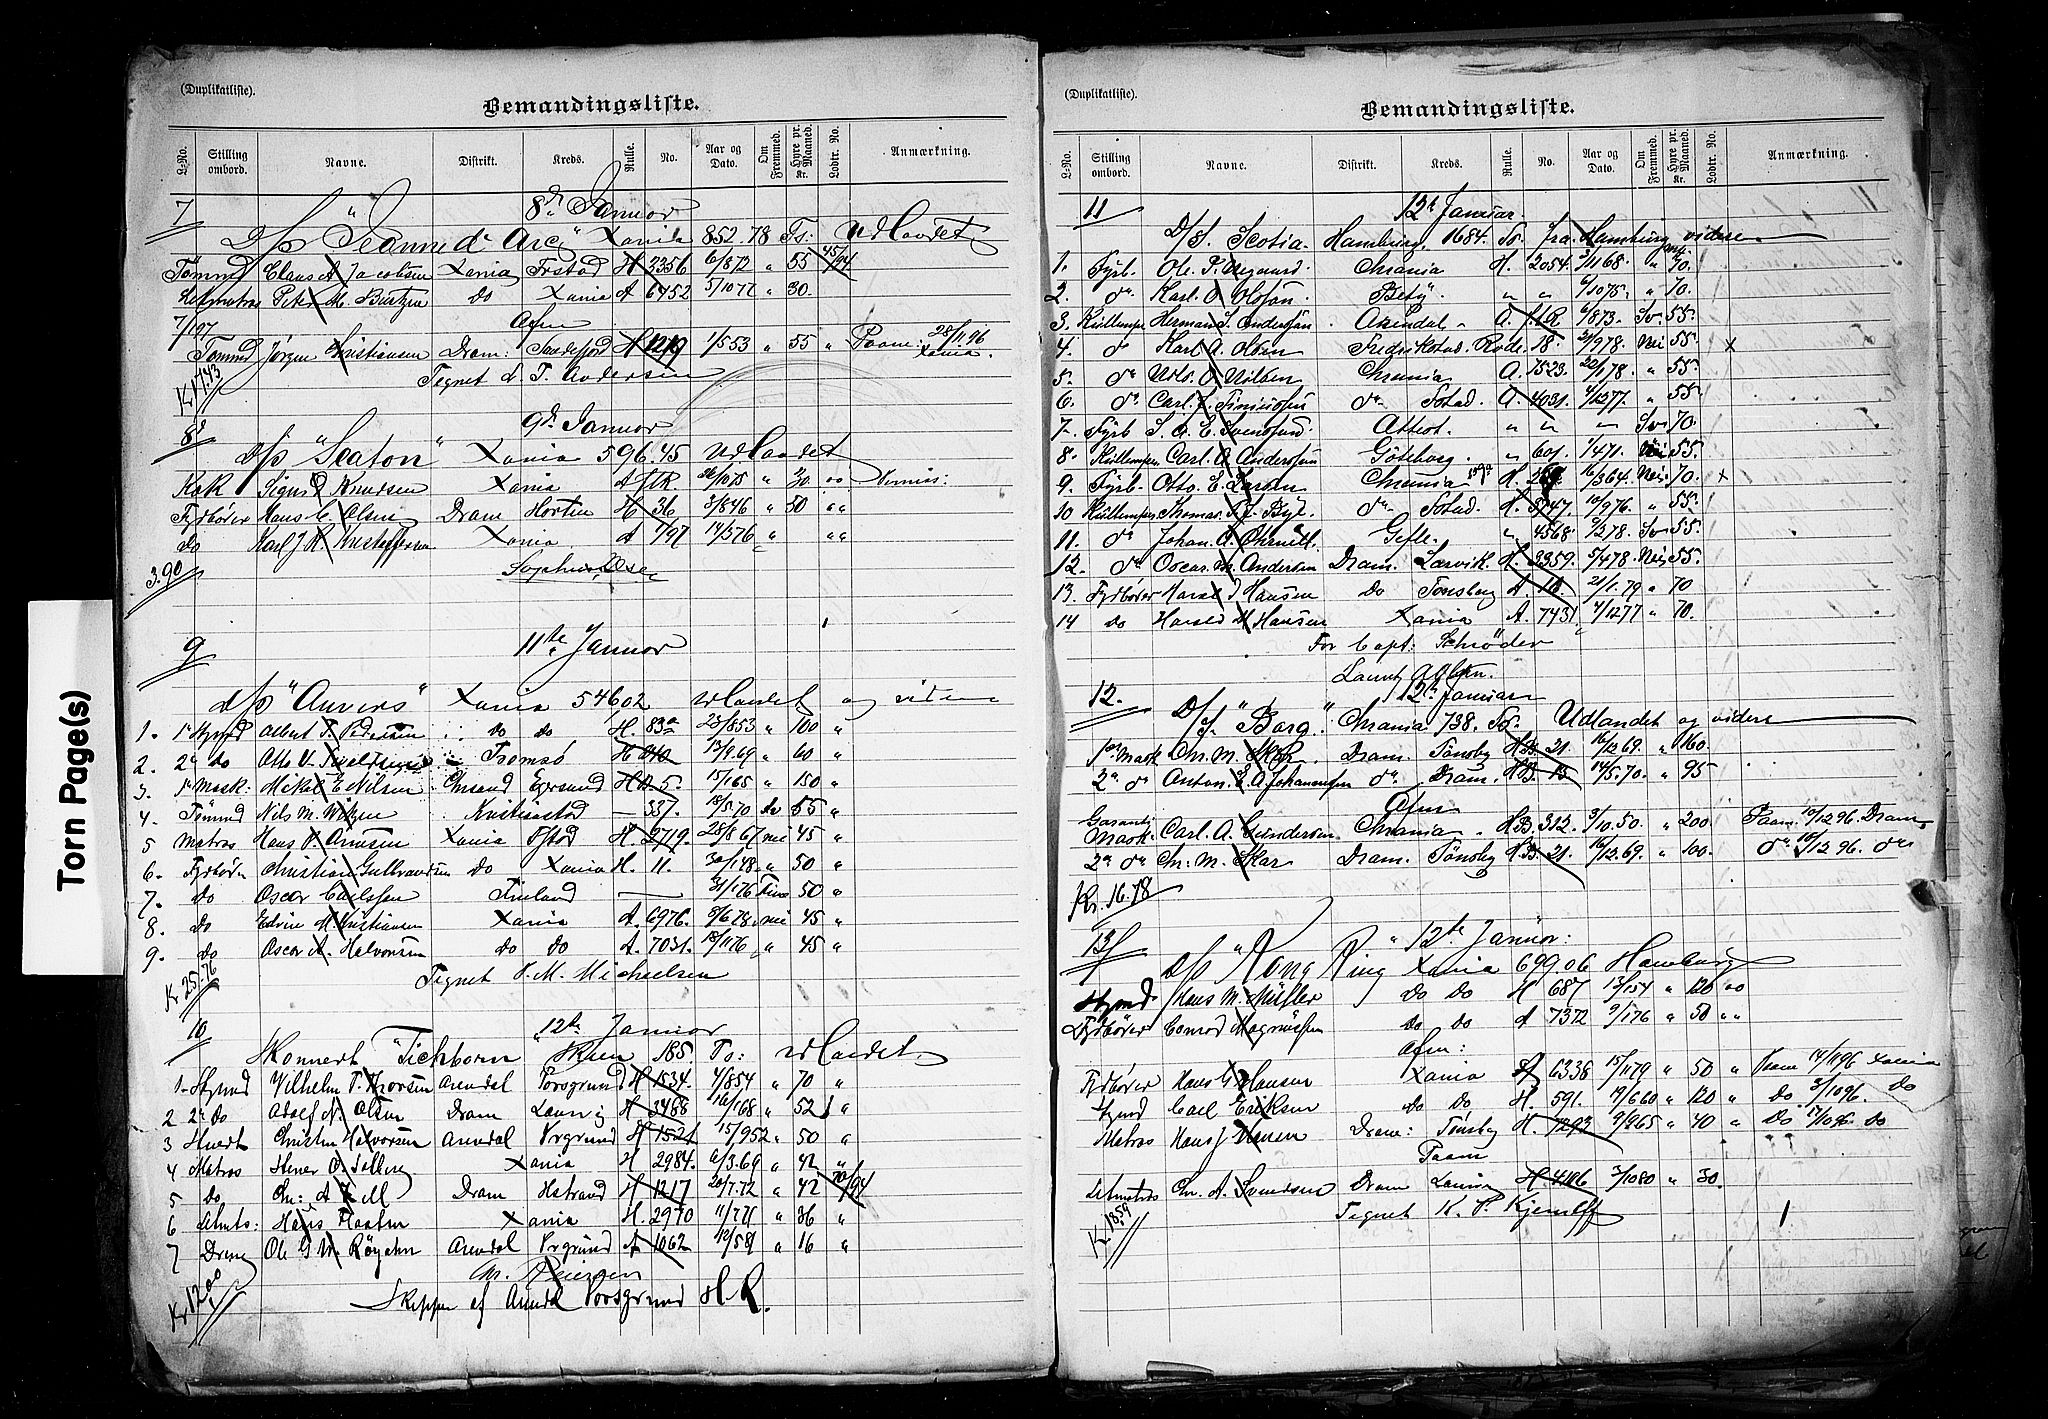 (Duplikatliste).
Bemandingsliste.
L-No. Stilling ombord. Navne. Distrikt. Kreds. Rulle. No. Aar og Dato. Om Fremmed. Hyre pr. Maaned. Kr. Lodtr. No. Anmærkning.
7 8de Januar
D/s "Jeanne d'Arc" Xania 852.78 Ts: Udlandet
Tømmd Claus A Jacobsen Xania Frstad H 3356 6/872 " 55 45/94
Letmatros Peter M. do Xania A 6452 5/1077 " 30.
7/197 Afm
Tømmd Jørgen Kristiansen Dram: Sandefjord H 1219 1/553 " 55 " Paam: 28/11 96 Xania.
Kr 17.43 Tegnet N. T. Andersen
8 9de Januar
D/s "Seaton" Xania 596.45 Udlandet
Kok Sigurd Knudsen Xania A 26/1075 " 30 "
Fyrbøter Hans C. Olsen Dram Horten H 36 3/846 " 50 "
do Karl J Kristoffersen Xania A 797 14/576 " "
3.90 Sophus Olsen
9 11te Januar
D/s "Anvers" Xania 546.02 Udlandet og videre
1. 1ste Stymd Albert T. Pedersen do do H. 83a 23/853 " 100 "
2. 2n do Otto V. Tromsø H 60 "
3. 1ste Mask: Mikal E Nilsen Chrsand Egersund HB 5. 15/165 " 150 "
4. Tømmd Nils M. Kristianstad — 337. 18/5.70 Sv 55 "
5 Matros Hans P. Arnesen Xania Fstad H 2719. 28/8 67 nei 45 "
6. Fyrbøter Christian Gulbrandsen Do Xania H. 11. 30/148 " 50 "
7. Do Oscar Carlsson Finland — 31/176 Fins 50 "
8. Do Edvin M. Kristiansen Xania A. 6976. 8/678. nei 45 "
9. Do Oscar A. Halvorsen Do Do A. 7031. 18/1176 " 45 "
Kr 25.76 Tegnet P. M. Michaelsen
10 12te Januar
Skonnert "Tichborn" Skien 185. Ts: Udlandet
1. Stymd Vilhelm T. Thorsen Arendal Porsgrund H 1534. 4/854 " 70 "
2 2n Do Adolf N. Olsen Dram Laurvig H 3488 16/168 " 52 "
3 Stuert Christen Halvorsen Arendal Prgrund H 1521 15/952 " 50 "
4 Matros Xania H 2984. 6/3.69 " 42 "
5 Do Chr: A. Dram Hstrand H 1217 20/7.72 " 42 70/94
6 Lmts: Hans Xania H. 2970 11/776 " 36 "
7 Dreng Ole G. Arendal Prgrund A 1062 12/581 " 16 "
Kr 12.00
Skipper af Arendal Porsgrund H R.
(Duplikatliste).
Bemandingsliste.
L-No. Stilling ombord. Navne. Distrikt. Kreds. Rulle. No. Aar og Dato. Om Fremmed. Hyre pr. Maaned. Kr. Lodtr. No. Anmærkning.
11 12te Januar.
D/S. Scotia. Hamburg. 1684. To. fra Hamburg videre
1. Fyrb. Ole P. Aegaard. Chrania H. 2054. 3/1168. " 70.
2. do Karl. O. Olofson. " " 6/1075. " 70.
3. Kullemper Herman S. Andersson. Arendal. A. 6/873. Sv. 55.
4. do Karl A. Olsen Fredrikstad. Rode. 18. 21/978. Nei 55. x
5. do Nils. O. Nilsen Chrania A. 7523. 20/178. " 55.
6. do Carl. J. Simensen do Fstad. A. 4031. 4/1277. " 55.
7. Fyrb S. A. E. Svensson. " " " Sv. 70.
8. Kullemper Carl. A. Andersson Göteborg. " 601. 1/471. Nei 55.
9. Fyrb. Otto. E. Larsen Chrania H. 16/364. Nei. 70. x
10 Kullemper Thomas. do Fstad. H. 8747. 10/976. " 55.
11. do Johan. A. Gefle. " 4568. 9/278. Sv. 55.
12. do Oscar. M. Andersen Dram. Larvik. H. 2359. 5/478. Nei 55.
13. Fyrbøter J Hansen Do Tønsberg A. 10. 21/1.79 " 70
14 Do Harald M Hansen Xania A. 7431 4/1277 " 70.
For Capt: Schrøder
12. 12te Januar
D/S. "Borg". Chrania 738. To. Udlandet og videre
1ste Mask Chr. M. Skar. Dram. Tønsbg HB. 21. 16/12.69. " 160.
2n do Anton. E. A. Johannesen do Dram. HB. 15 14/5.70. " 95
Afm
Garanti Mask. Carl. A. Gundersen. Chrania. HB. 312. 9/10.50. " 200 Paam. 10/12 96. Dram.
2n do Chr. M. Skar Dram. Tønsbg HB. 21. 16/12.69. " 100. do 10/12 96. do
Kr. 16.78
13 12te Januar:
D/s "Kong Ring" Xania 699.06 Hamburg
Stymd Hans M. Müller Do Do H 687 13/154 " 120 "
Fyrbøter Conrad Magnussen Do Do A 7372 9/176 " 50 "
Afm:
Fyrbøter Hans G. Hansen Xania A 6338 15/1179 " 50 " Paam 14/1196 Xania
Stymd Carl Eriksen Do Do H. 591. 19/660 " 120 " Do 3/1096. Do
Matros Hans J Dram: Tønsbg H. 7293 9/965 " 40 " Do Do
Paam
Letmatros Chr. A. Svendsen Dram Laurvig H. 4186 3/1080 " 30.
Kr 18.59 Tegnet K. P. Kjerulff
Torn Page(s)